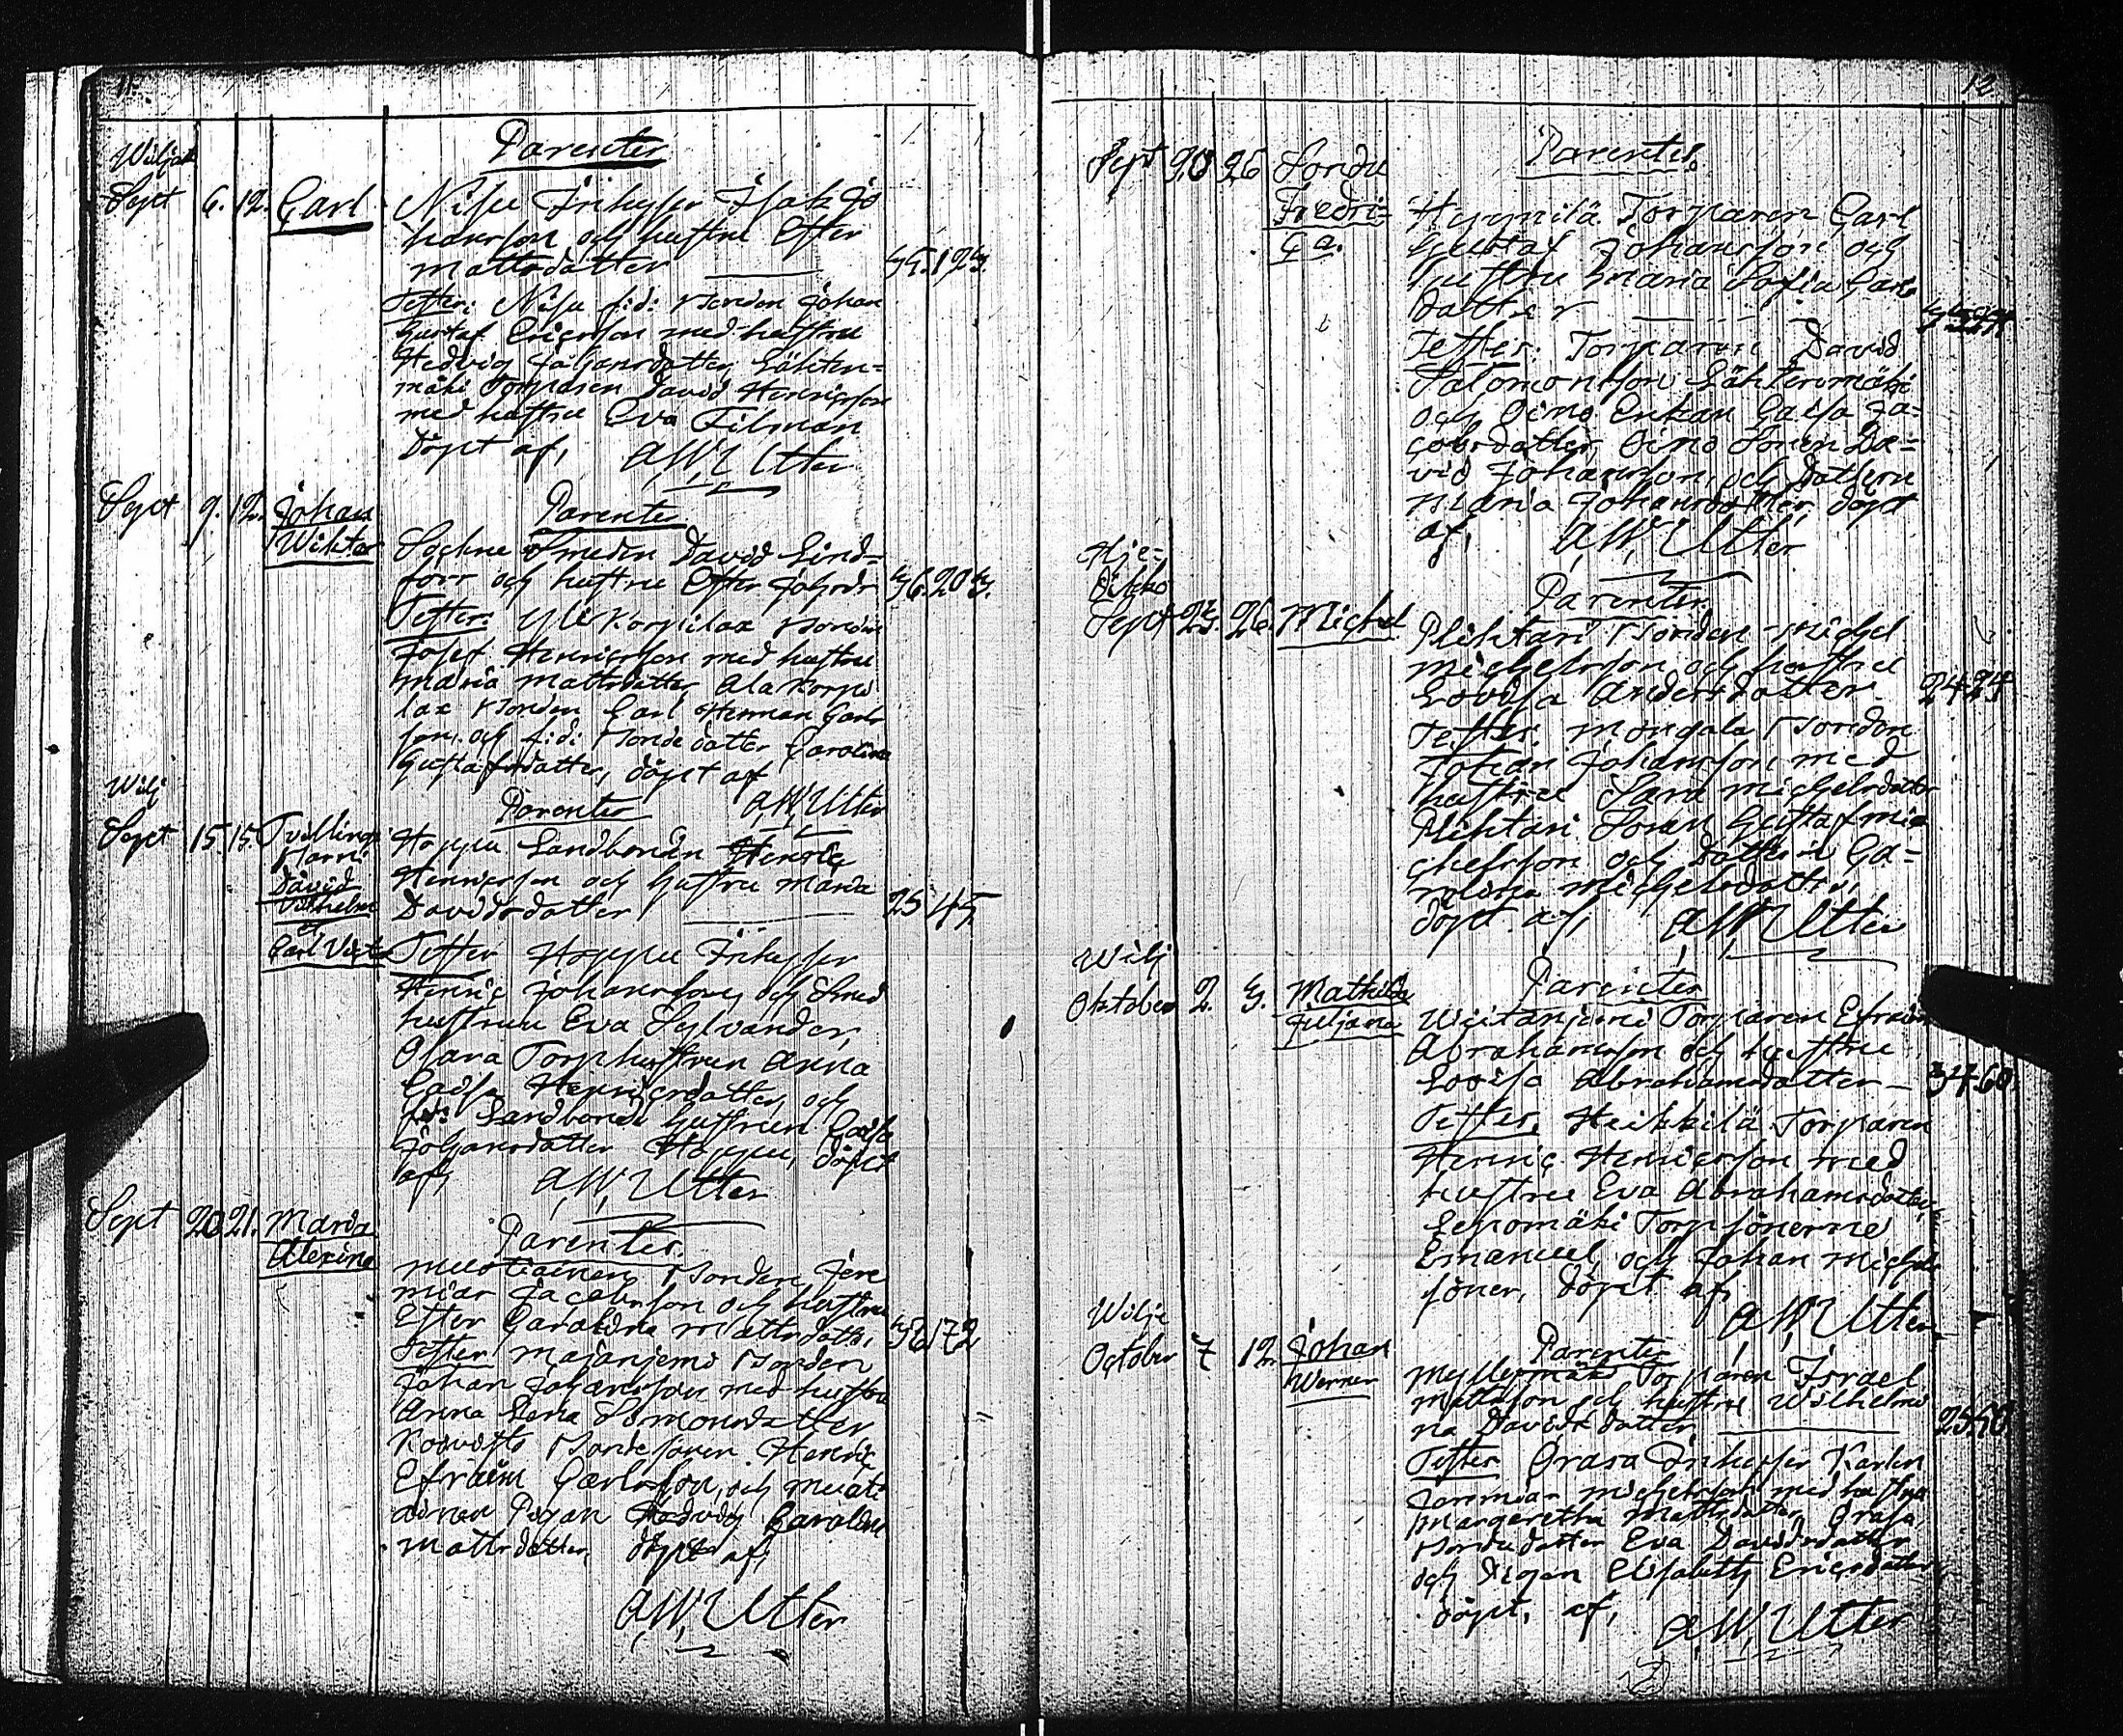 11.
Parenter
Wiljak
Sept 6. 12. Carl Nisu Inhyser Isak Jo
hansson och hustru Ester
Mattsdotter 35. 123.
Tester: Nisu bonden Johan
Gustaf Ericsson med hustru
Hedvig Johansdotter, Lähten=
mäki Torparen David Henricsson
med hustru Eva Filman
döpt af, A.W. Utter
Parenter
Sept 9. 12. Johan
Wiktor Sockne Smeden David Lind=
fors och hustru Ester Johsdr 36. 203.
Tester: Yli Korpilax bonden
Josef Henricsson med hustru
Maria Mattsdotter, Ala Korpi
lax bonden Carl Herman Carls
son, och bonde dotter Carolina
Gustafsdotter, döpt af
A.W. Utter
Wilj
Parenter
Sept 15. 15. Tvillings
barn:
David
Wilhelm
et
Carl Victor
Hoppu Landbonden Henric
Henricsson och hustru Maria
Davidsdotter 25 45
Tester Hoppu Inhyser
Henric Johansson, och
hustrun Eva Sylvander,
Olava Torphustrun Anna
Caisa Henricsdotter, och
Landbonde hustrun Caisa
Johansdotter Hoppu, döpt
af, A.W. Utter
Sept 20 21. Maria
Alexina
Parenter.
Mustiainen bonden Jere
mias Jacobsson och hustru
Ester Carolina Mattsdotter 172
Tester Majaniemi bonden
Johan Johansson med hustru
Anna Lena Simonsdotter
Koivisto bondesonen Henric
Efraim Carlsson, och Musti
ainen Pigan Hedvig Carolina
Mattsdotter, döpt af,
A.W. Utter
12
Parenter.
Sept 20 26
Fredri=
ca.
Torparen Carl
Gustaf Johansson och
hustru Maria Sofia Carls
dotter
Tester. Torparen David
Salomonsson Lähtenmäki
och Enkan Caisa Ja=
cobsdotter, Sonen Da=
vid Johansson, och dottern
Maria Johansdotter, döpt
af, A.W. Utter
Parenter.
Sept 23. 26. Michel Plihtari bonden Michel
Michelsson och hustru
Lovisa Andersdotter. 24 24
Tester. Mongala bonden
Johan Johansson med
hustru Sara Michelsdotter
Plihtari Sonen Gustaf Mi
chelsson och dottern Ca=
rolina Michelsdotter.
döpt af, A.W. Utter
Wilj
Parenter
Oktober 2. 3. Mathilda
Juljana
Torparen Efraim
Abrahamsson och hustru
Lovisa Abrahamsdotter— 34. 60
Tester. Heikkilä Torparen
Henric Henricsson med
hustru Eva Abrahamsdotter,
Lepomäki Torpsönerne
Emanuel, och Johan Michels
söner, döpt af,
A.W. Utter.
Wilje
Parenter
October 7 12. Johan
Werner
Myllymäki Torparen Israel
Mattsson och hustru Wilhelmi
na Davidsdotter
Tester Orasa Inhyser Karlen
Jeremias Michelsson med hustru
Margeretha Mattsdotter, Orasa
bondedotter Eva Davidsdotter
och Pigan Elisabeth Ericsdotter,
döpt, af, A.W. Utter